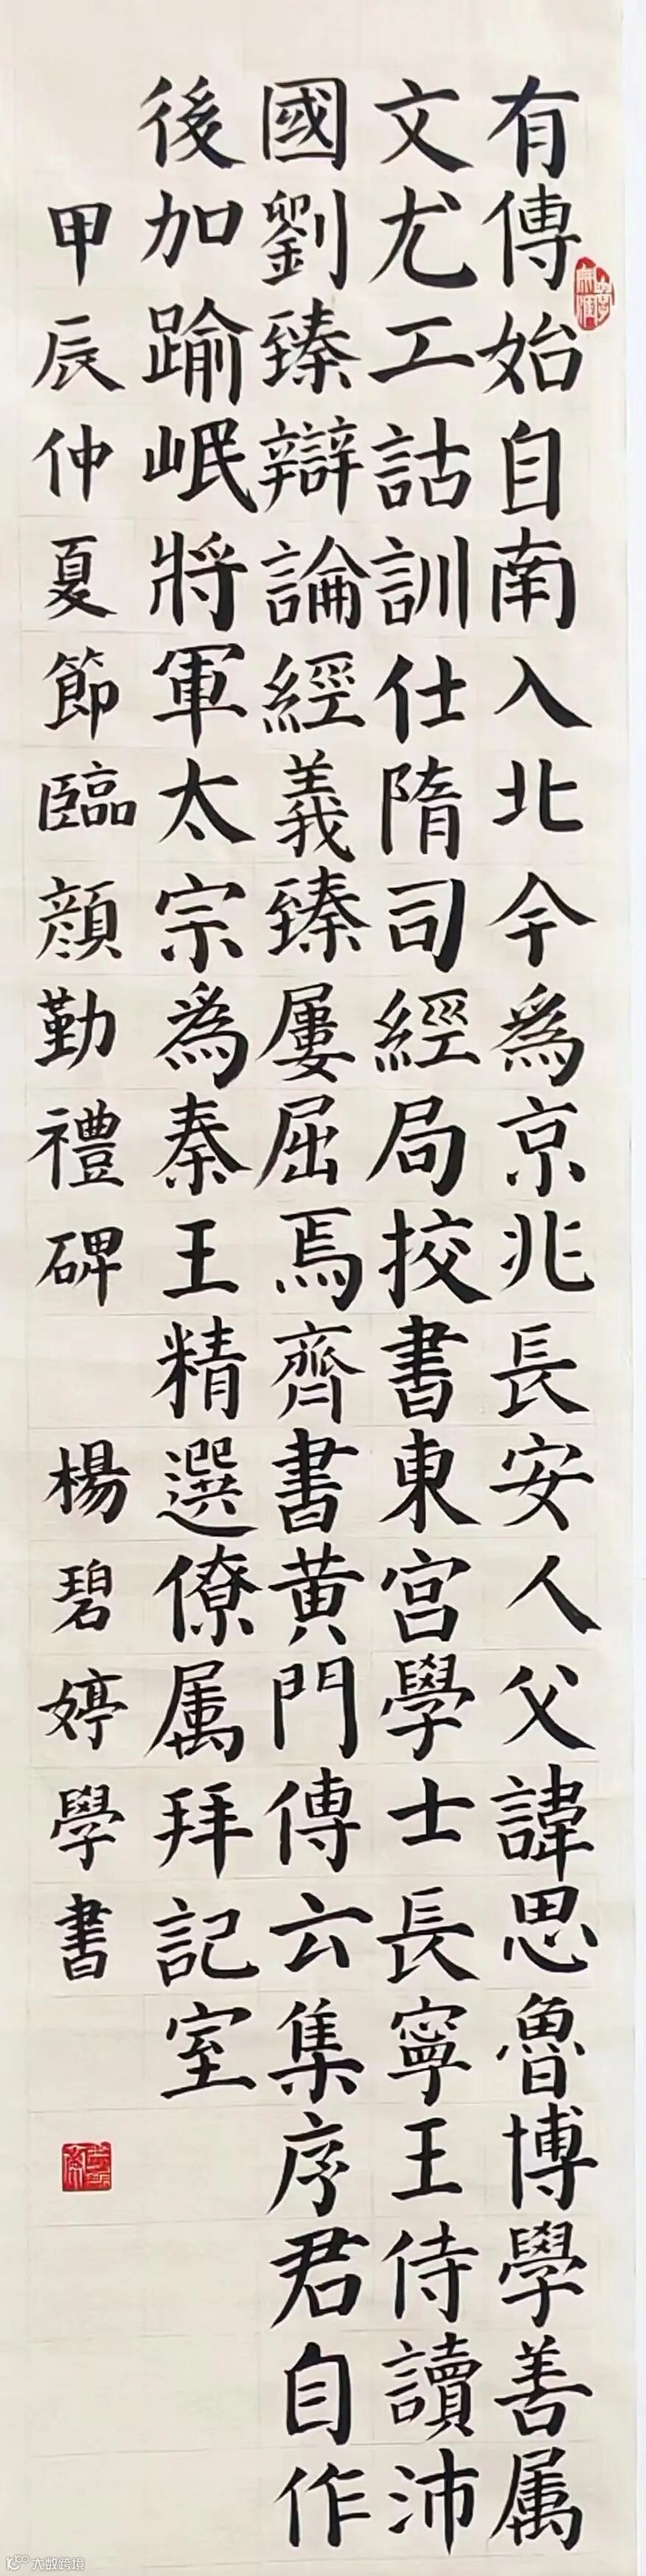 有傳始自南入北今爲京兆長安人父諱思魯博學善属
文尤工詁訓仕隋司經局挍書東宫學士長寧王侍讀沛
國劉臻辯論經義臻屢屈焉齊書黄門傳云集序君自作
後加踰岷將軍太宗爲秦王精選僚属拜記室
甲辰仲夏節臨顔勤禮碑 楊碧婷學書
大数跨境